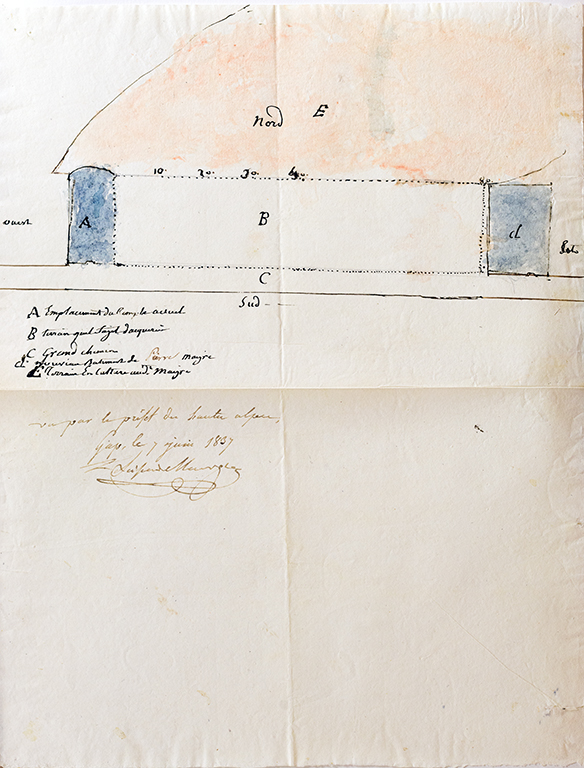 Nord E
10. 20. 30. 40. 80.
ouest A B d Est
C
Sud
A Emplacement du temple actuel
B terrain quil sagit dacquerir
C Grand chemin
d. nouveau Batiment de Pierre mayre
E terrain En Culture audt. Mayre
vu par le préfet des hautes alpes,
Gap, le 7 juin 1837